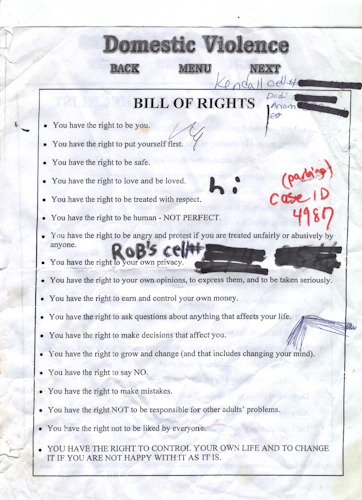 Domestic Violence
BACK MENU NEXT
Kendall
Dod
Anom
BILL OF RIGHTS
• You have the right to be you.
• You have the right to put yourself first.
• You have the right to be safe.
• You have the right to love and be loved.
hi
(parking)
• You have the right to be treated with respect.
CASE ID
• You have the right to be human - NOT PERFECT.
4987
• You have the right to be angry and protest if you are treated unfairly or abusively by
anyone.
ROB's cell#
• You have the right to your own privacy.
• You have the right to your own opinions, to express them, and to be taken seriously.
• You have the right to earn and control your own money.
• You have the right to ask questions about anything that affects your life.
• You have the right to make decisions that affect you.
• You have the right to grow and change (and that includes changing your mind).
• You have the right to say NO.
• You have the right to make mistakes.
• You have the right NOT to be responsible for other adults' problems.
• You have the right not to be liked by everyone.
• YOU HAVE THE RIGHT TO CONTROL YOUR OWN LIFE AND TO CHANGE
IT IF YOU ARE NOT HAPPY WITH IT AS IT IS.